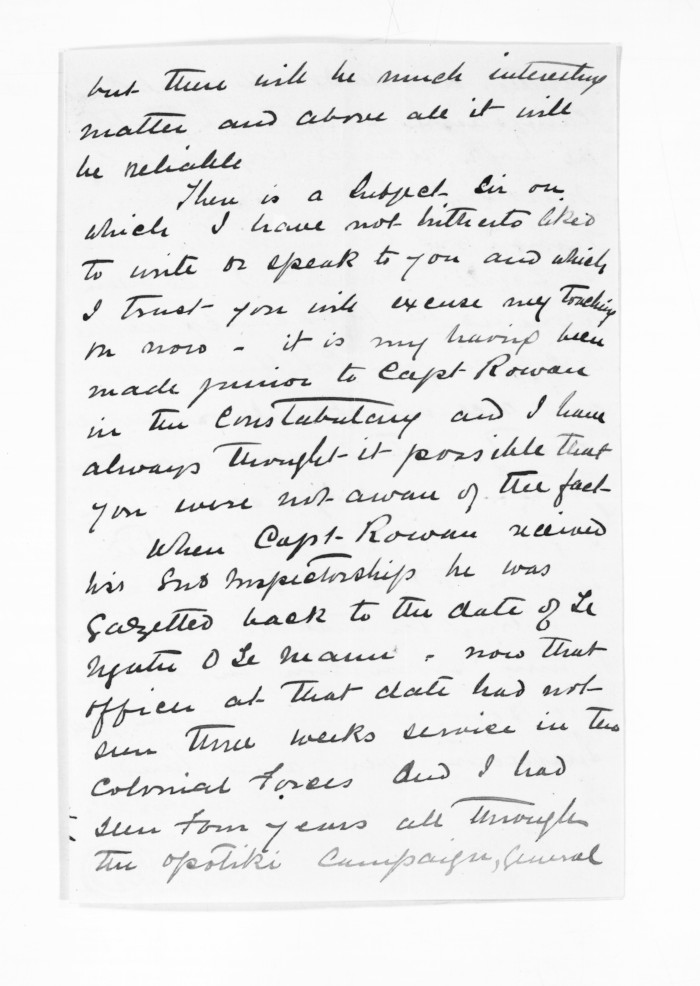 but there will be much interesting
matter and above all it will
be reliable
There is a subject Sir on
which I have not hitherto liked
to write or speak to you and which
I trust you will excuse my touching
on now - it is my having been
made junior to Capt Rowan
in the Constabulary and I have
always thought it possible that
you were not aware of the fact
When Capt Rowan received
his Sub Inspectorship he was
Gazetted back to the date of Te
Ngutu O Te Manu - now that
officer at that date had not
seen three weeks service in the
Colonial Forces and I had
seen four years all through
the Opotiki Campaign, General